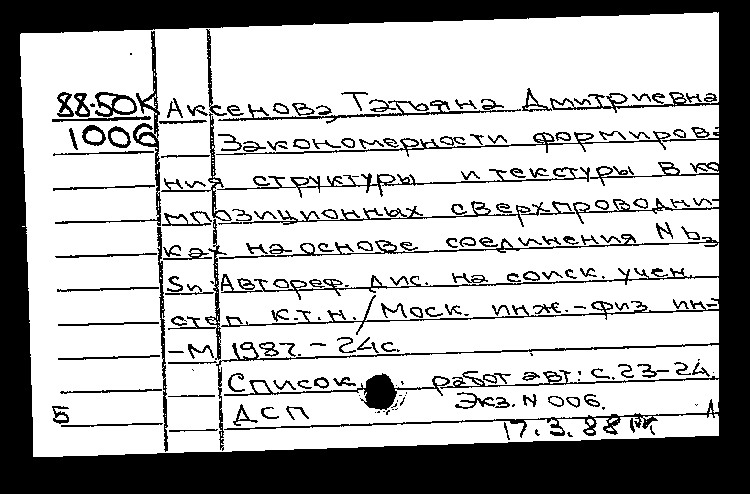 88-50К Аксенова, Татьяна Дмитриевна
1006 Закономерности формирова
ния структуры и текстуры в ко
мпозиционных сверхпроводни-
ках на основе соединения Nb3
Sn: Автореф. дис. на соиск. учен.
степ. к.т.н. / Моск. инж.-физ ин-т
-М 1987. - 24с.
Список работ авт: с.23-24.
5 ДСП Экз. N 006.
17.3.88